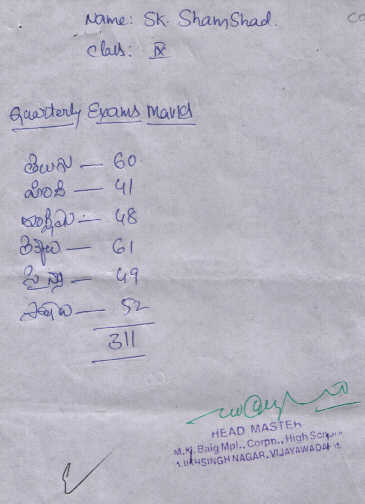 Name: SK. ShamShad.
Class: IX
Quarterly Exams Marks
తెలుగు — 60
హిందీ — 41
ఇంగ్లీషు — 48
లెక్కలు — 61
సైన్సు — 49
సోషల్ — 52
311
HEAD MASTER
M.K. Baig Mpl., Corpn., High School
SINGH NAGAR, VIJAYAWADA